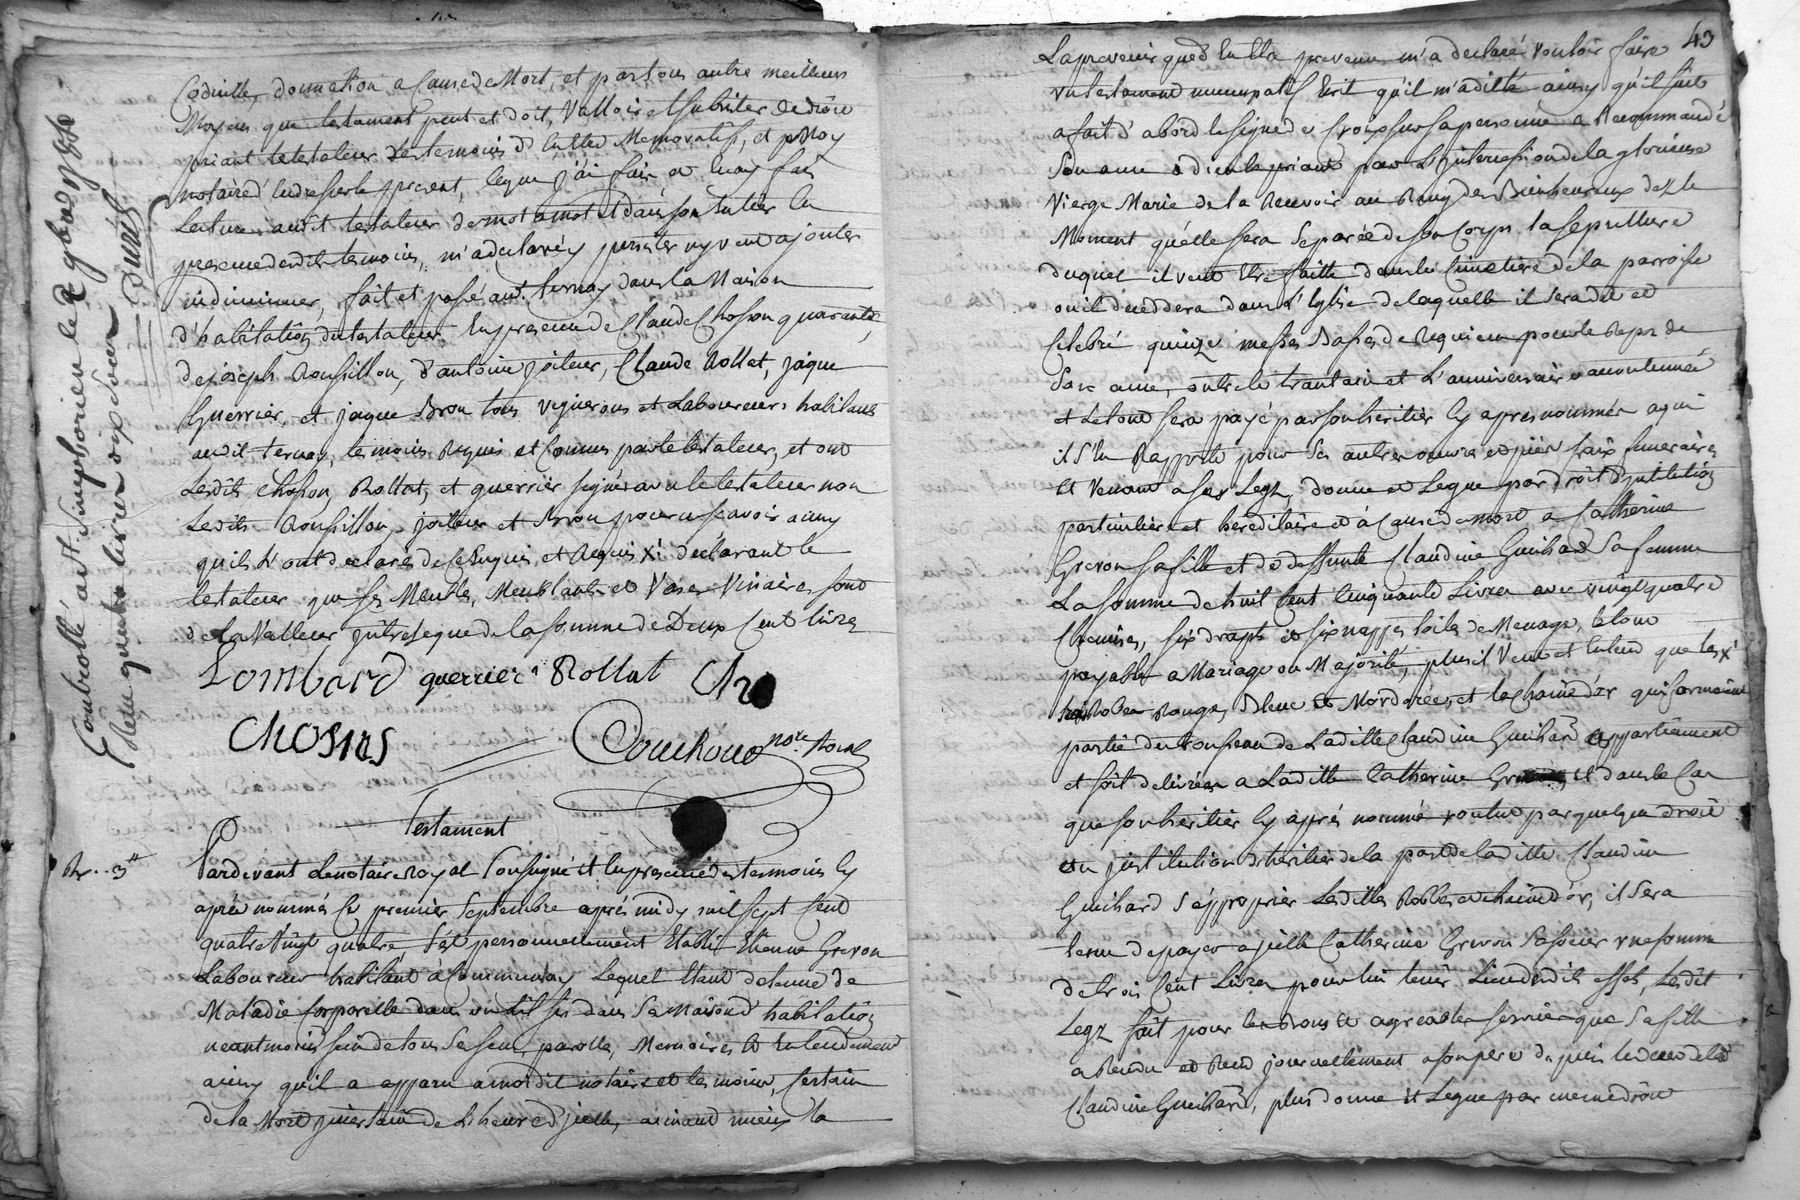 Codicille, donnation a Cause de Mort, et par tous autre meilleurs
Moyens que testament peut et doit Valloir et subsister de droit
priant le testateur les temoins d'en Etre Memoratifs, et moy
notaire d'en dresser le present, lequel j'ai fait et en ay fait
Lecture audit testateur de mot a mot et dans son Entier En
presence desdits temoins, m'a declaré y persister ny veut ajouter
ni diminuer, fait et passé audit ternay dans la Maison
d'habitation du testateur En presence de Claude Chosson quarante,
de joseph Roussillon, d'antoine joiteur, Claude Rollat, jaque
Guerrier, et jaque Bron tous vignerons et Laboureurs habitans
audit ternay, temoins Requis et Connus par le testateur, et ont
Lesdits Chosson, Rollat, et guerrier signé avec le testateur non
Lesdits Roussillon, joiteur et Bron pour ne sçavoir ainsy
qu'ils l'ont declaré de ce Enquis et Requis X declarant le
testateur que ses Meubles, Meublants et Vases Vinaires sont
de la Valleur intrinseque de la somme de Deux Cent livres
Lombard guerrier Rollat Cho
Chosson
Couchoud no.re Royal
Controllé a St Simphorien le 2 7bre 1784
Reçu quinze livres dix sous
Duret
Testament
R. 3 tt
Pardevant Le notaire Royal Soussigné et En presence des temoins Cy
après nommés Ce premier Septembre après midy mil sept Cent
quatre Vingt quatre S'est personnellement Etabli Etienne Grevon
Laboureur habitant à Communay Lequel Etant detenu de
Maladie Corporelle dans un Lit sis dans Sa Maison d'habitation
neantmoins sain de tous Ses sens, parolle, Memoires et Entendement
ainsy qu'il a apparu a moidit notaire et temoins, Certain
de la Mort incertain de L'heure d'jcelle, aimant mieux la
43
La prevenir que d'En Etre prevenu m'a declaré Vouloir faire
un testament nuncupatif Ecrit qu'il m'a dicté ainsy qu'il suit
a fait d'abord le signe de Croix sur sa personne a Recommandé
Son ame a dieu le priant par L'jntercession de la glorieuse
Vierge Marie de la Recevoir au Rang des Bienheureux dez le
Moment qu'elle sera Separée de son Corps la sepulture
duquel il veut Etre faitte dans le Cimetiere de la parroisse
ou il deceddera dans L'Eglise de laquelle il sera dit et
Celebré quinze messes Basses de Requiem pour le Repos de
Son ame, outre le trantain et L'anniversaire accoutumé
et Le tout sera payé par son heritier Cy apres nommé a qui
il S'En Rapporte pour Ses autres œuvres et pies fraix funeraires
Et Venant a ses Legz, donne et Legue par droit d'jnstitution
particuliere et hereditaire et à Cause de mort a Catherine
Grevon sa fille et de deffunte Claudine Guichard Sa femme
La somme de huit Cent Cinquante Livres avec vingt quatre
Chemises, six draps et six nappes toile de Menage, le tout
payable a Mariage ou Majorité, plus il Veut et Entend que les X
Robes Rouge, Bleue et Mordorée, et la Chaine d'or qui formoient
partie du trousseau de Laditte Claudine Guichard appartienent
et soit delivrées a Laditte Catherine et dans le Cas
que son heritier Cy après nommé voulut par quelque droit
ou jnstitution d'heritier de la part de laditte Claudine
Guichard S'approprier Lesdites Robbes et chaine d'or, il sera
tenu de payer a jcelle Catherine Grevon Sa sœur une somme
de trois Cent Livres pour lui tenir Lieu desdits effets, Lesdit
Legz fait pour les Bons et agreables services que Sa fille
a Rendu et Rend journellement a son pere depuis le deces de la
Claudine Guichard, plus donne et Legue par meme droit